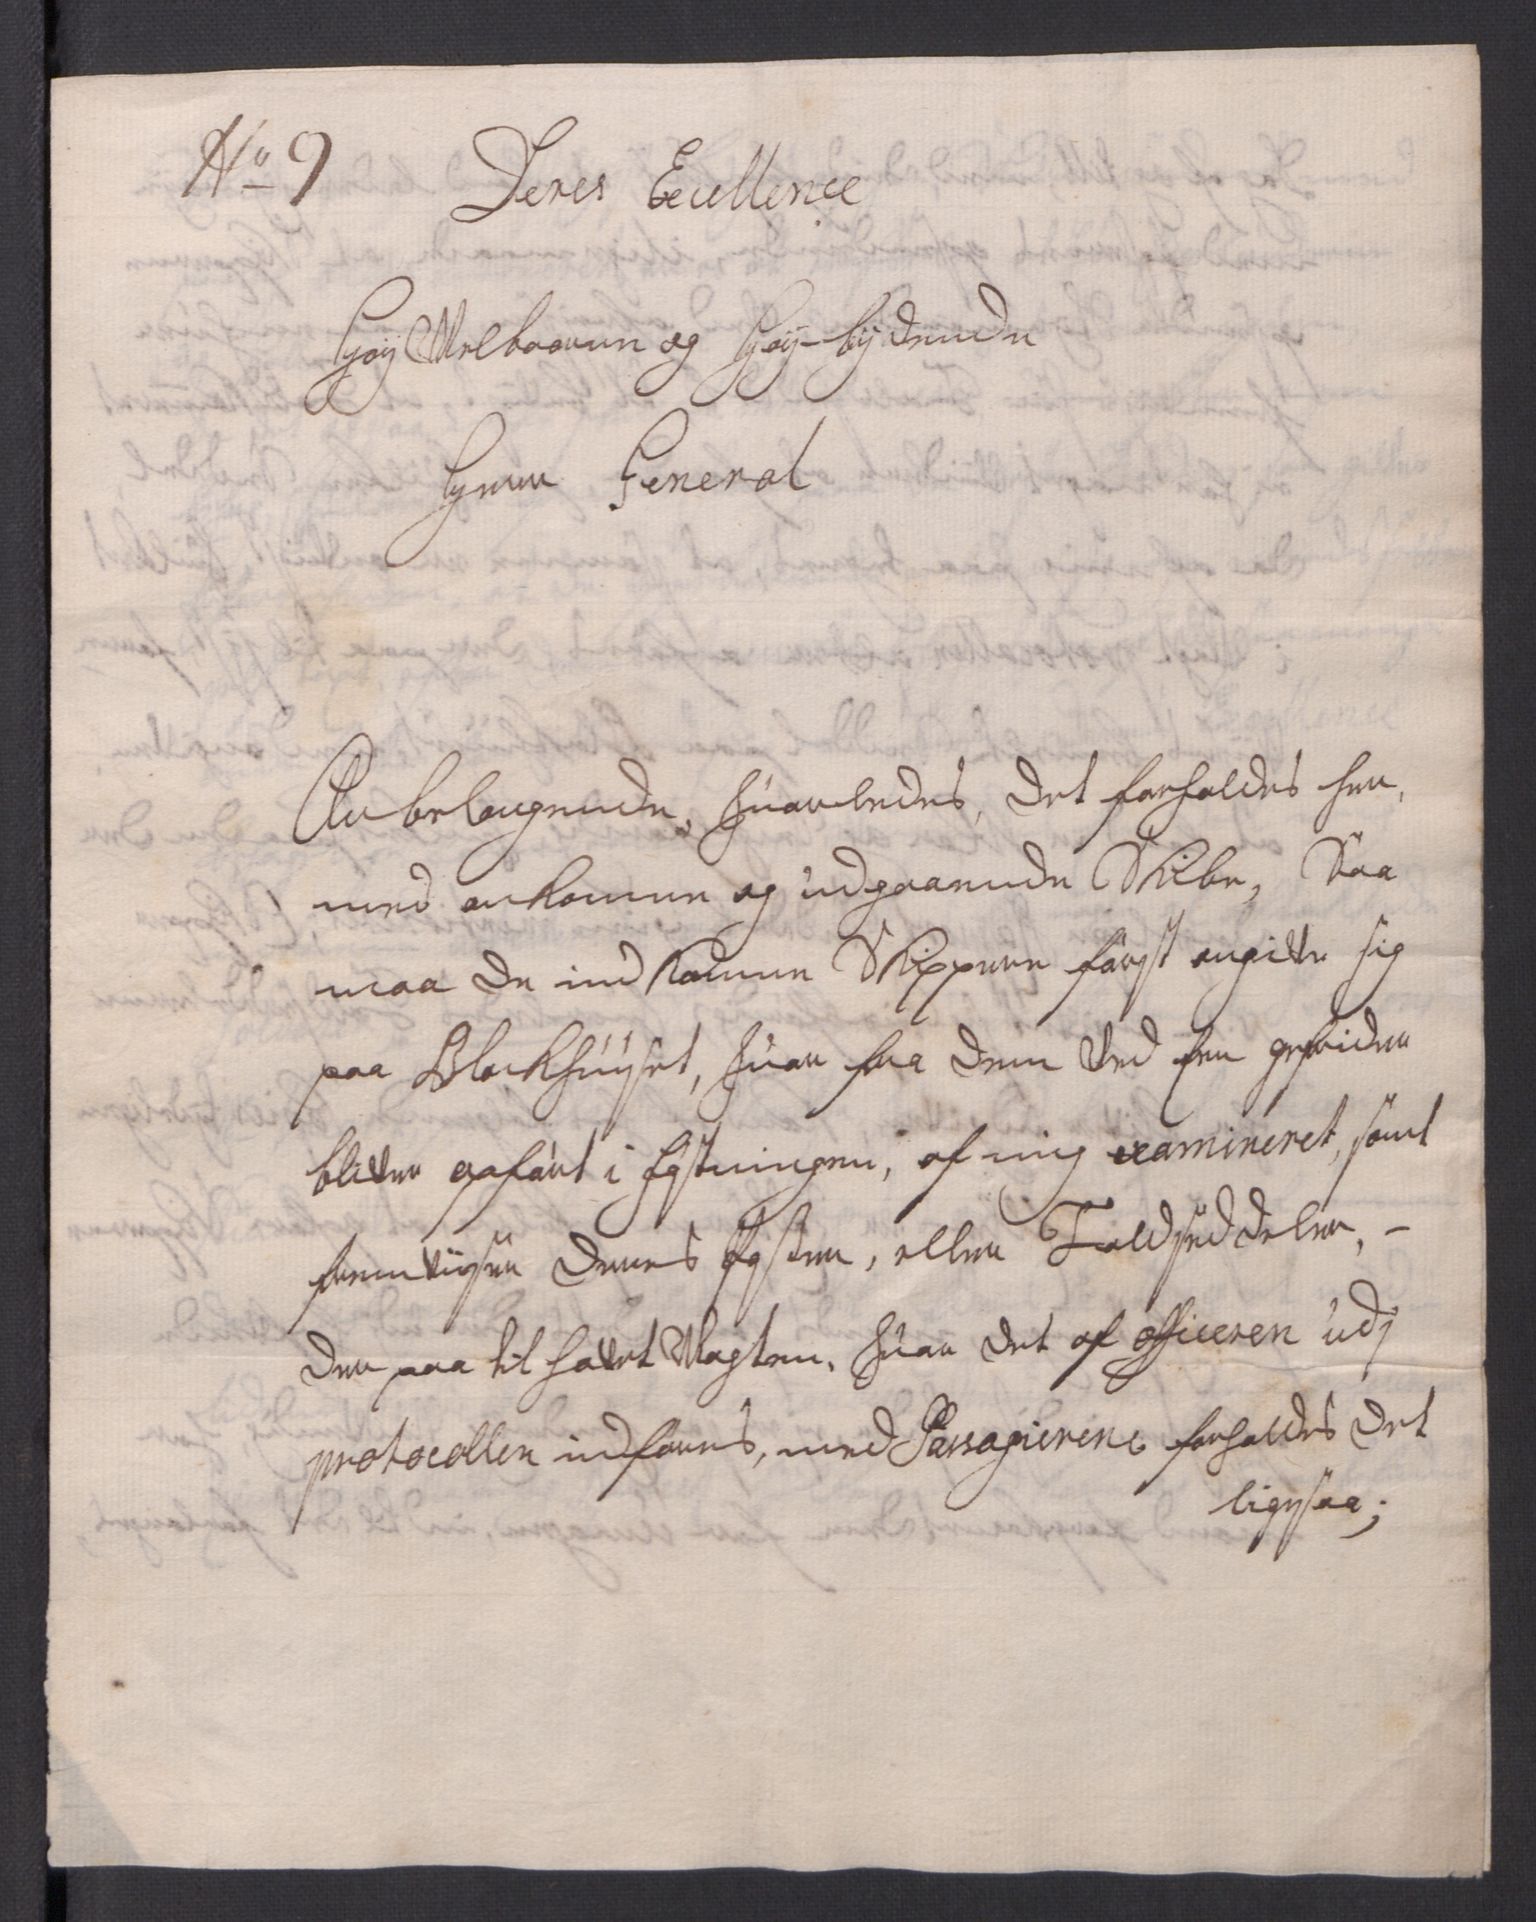 No 9
Deres Excellence
Høÿ Welbaarne og Høÿ-bÿdende
Herre General
An belangende, huorledes, det forholdes her,
med ankomne og udgaaende Skibe, Saa
maa de ind komne Skippere først angive sig
paa Blockhuÿset, huor fra dem ved een gefrider
bliver opført i festningen, af mig examineret, samt
fremviser deres Pas, eller Toldseddeler, -
der paa til hovet Wagten, huor det af officeren udj
protocollen indføres, med Passagierene forholdes det
ligesaa;